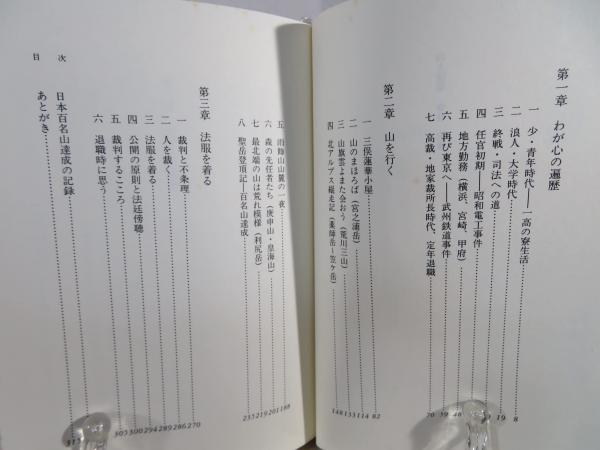 第一章 わが心の遍歴
一 少・青年時代――一高の寮生活 8
二 浪人・大学時代 19
三 終戦・司法への道
四 任官初期――昭和電工事件
五 地方勤務（横浜、宮崎、甲府） 48
六 再び東京へ――武州鉄道事件 59
七 高裁・地家裁所長時代、定年退職 70
第二章 山を行く
一 三俣蓮華小屋 82
二 山のまほろば（宮之浦岳） 114
三 山旗雲よまた会おう（荒川三山） 133
四 北アルプス縦走記（薬師岳～笠ヶ岳） 148
五 雨飾山山麓の一夜 188
六 森の先住者たち（庚申山・皇海山） 201
七 最北端の山は荒れ模様（利尻岳） 219
八 聖岳登頂記――百名山達成 235
第三章 法服を着る
一 裁判と不条理 270
二 人を裁く 286
三 法服を着る 289
四 公開の原則と法廷傍聴 294
五 裁判するこころ 300
六 退職時に思う 305
日本百名山達成の記録
あとがき
目次